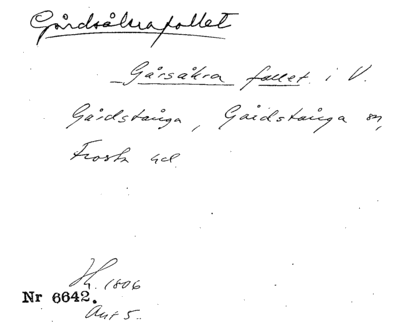 Gårdsåkrafallet
Gårsåkra fallet i V.
Gårdstånga, Gårdstånga sn,
Frosta hd.
H. 1806
Nr 6642.
Akt 5.